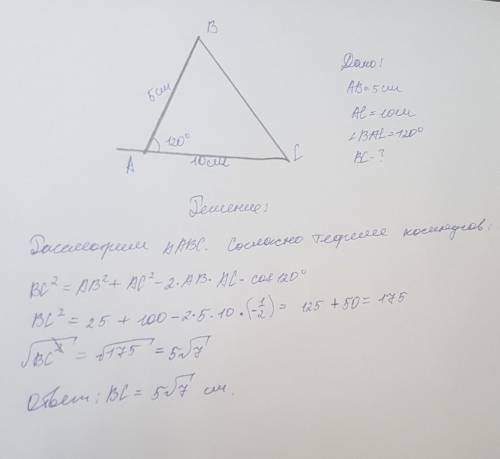 B
5см
120°
A
10см
C
Дано:
AB=5см
AC=10см
∠BAC=120°
BC-?
Решение:
Рассмотрим △ABC. Согласно теореме косинусов:
BC² = AB² + AC² - 2·AB·AC·cos120°
BC² = 25 + 100 - 2·5·10·(-1/2) = 125 + 50 = 175
√BC² = √175 = 5√7
Ответ: BC = 5√7 см.